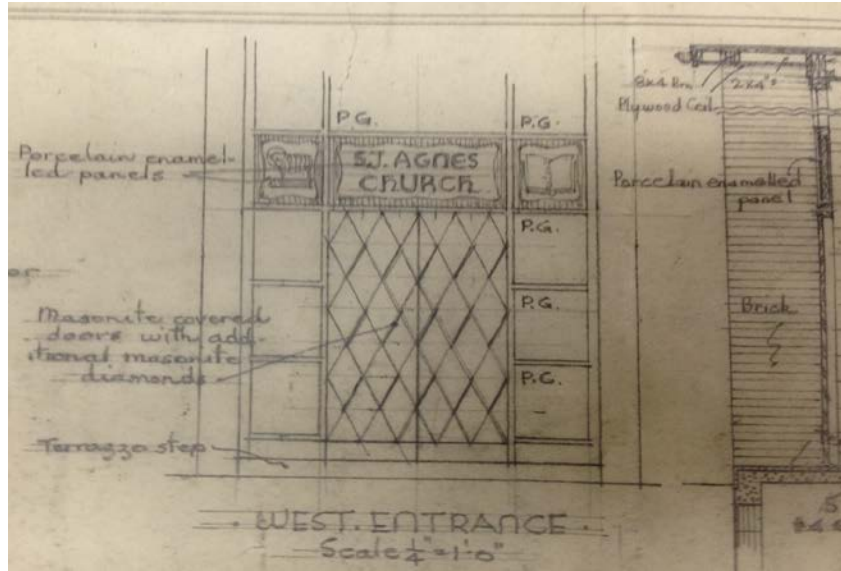 P.G.
P.G.
Porcelain enamel-
led panels
ST. AGNES
CHURCH
P.G.
P.G.
P.G.
Masonite covered
doors with add-
itional masonite
diamonds
Terrazzo step
WEST. ENTRANCE
Scale ¼" = 1'-0"
8x4 Bm
2x4"s
Plywood Ceil.
Porcelain enamelled
panel
Brick